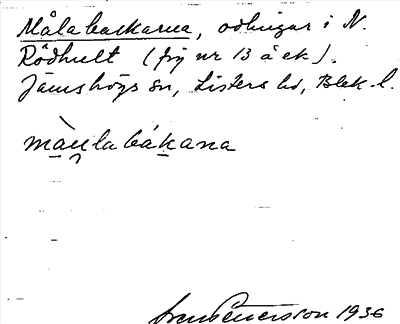 Målabackarna, odlingar i N.
Rödhult (fig nr 13 å ek).
Jämshögs sn, Listers hd, Blek. l.
màu̯labákana
Sven Petersson 1936